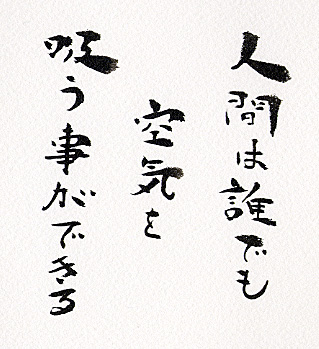 人間は誰でも
空気を
吸う事ができる